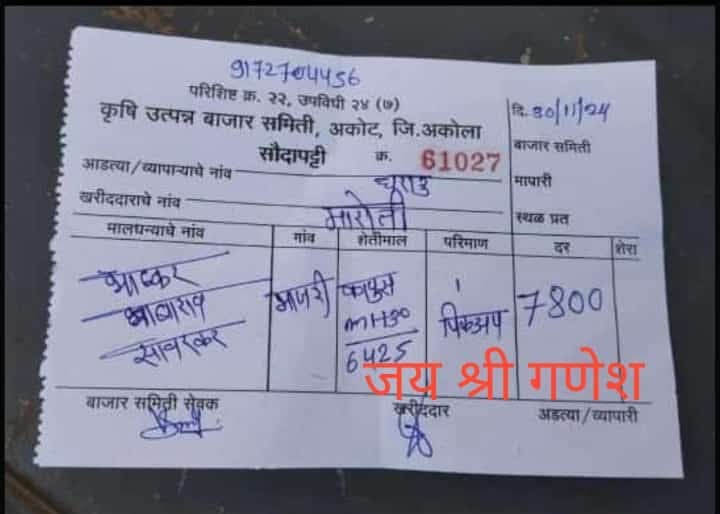 9172704456
परिशिष्ट क्र. २२, उपविधी २४ (७)
कृषि उत्पन्न बाजार समिती, अकोट, जि.अकोला
दि. 30/11/24
सौदापट्टी क्र. 61027
बाजार समिती
आडत्या/व्यापाऱ्याचे नांव
मापारी
खरीददाराचे नांव मारोती
स्थळ प्रत
मालधन्याचे नांव गांव शेतीमाल परिमाण दर शेरा
भास्कर
सावरकर
कापुस
MH30
6425
1
पिकअप
7800
जय श्री गणेश
बाजार समिती सेवक खरीददार अडत्या/व्यापारी